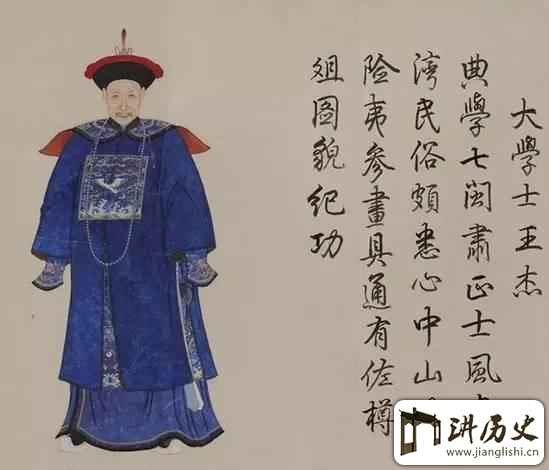 大學士王杰
典學七閩肅正士風
湾民俗頗悉心中山
險夷參畫具通有佐樽
俎圖貌紀功
讲历史
www.jianglishi.cn